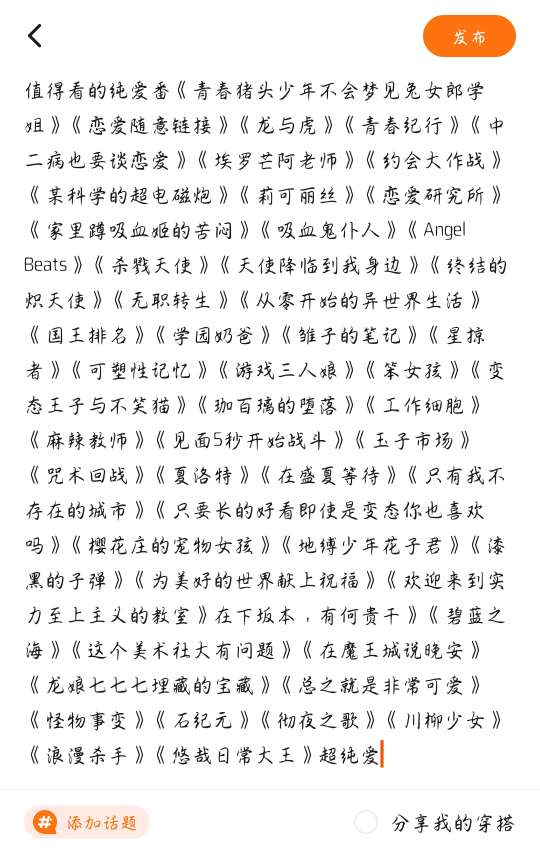 发布
值得看的纯爱番《青春猪头少年不会梦见兔女郎学
姐》《恋爱随意链接》《龙与虎》《青春纪行》《中
二病也要谈恋爱》《埃罗芒阿老师》《约会大作战》
《某科学的超电磁炮》《莉可丽丝》《恋爱研究所》
《家里蹲吸血姬的苦闷》《吸血鬼仆人》《Angel
Beats》《杀戮天使》《天使降临到我身边》《终结的
炽天使》《无职转生》《从零开始的异世界生活》
《国王排名》《学园奶爸》《雏子的笔记》《星掠
者》《可塑性记忆》《游戏三人娘》《笨女孩》《变
态王子与不笑猫》《珈百璃的堕落》《工作细胞》
《麻辣教师》《见面5秒开始战斗》《玉子市场》
《咒术回战》《夏洛特》《在盛夏等待》《只有我不
存在的城市》《只要长的好看即使是变态你也喜欢
吗》《樱花庄的宠物女孩》《地缚少年花子君》《漆
黑的子弹》《为美好的世界献上祝福》《欢迎来到实
力至上主义的教室》在下坂本，有何贵干》《碧蓝之
海》《这个美术社大有问题》《在魔王城说晚安》
《龙娘七七七埋藏的宝藏》《总之就是非常可爱》
《怪物事变》《石纪元》《彻夜之歌》《川柳少女》
《浪漫杀手》《悠哉日常大王》超纯爱
# 添加话题
分享我的穿搭